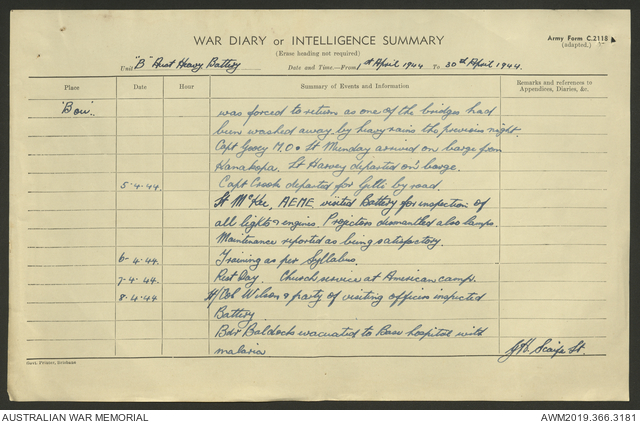 WAR DIARY or INTELLIGENCE SUMMARY
Army Form C.2118
(adapted.)
(Erase heading not required)
Unit "B" Aust Heavy Battery
Date and Time.—From 1st April 1944 to 30th April 1944.
Place Date Hour Summary of Events and Information Remarks and references to Appendices, Diaries, &c.
was forced to return as one of the bridges had
been washed away by heavy rains the previous night.
Capt Gooey M.O. & Lt Munday arrived on barge from
Hanakopa. Lt Harvey departed on barge.
5.4.44. Capt Crook departed for Gilli by road.
Lt McKee, AEME visited Battery for inspection of
all lights & engines. Projectors dismantled also lamps.
Maintenance reported as being satisfactory.
6.4.44. Training as per Syllabus.
7.4.44. Rest Day. Church service at American camp.
8.4.44. Lt/Col Wilson & party of visiting officers inspected
Battery
Bdr Baldock evacuated to Base hospital with
malaria
Scaife Lt.
AUSTRALIAN WAR MEMORIAL
AWM2019.366.3181